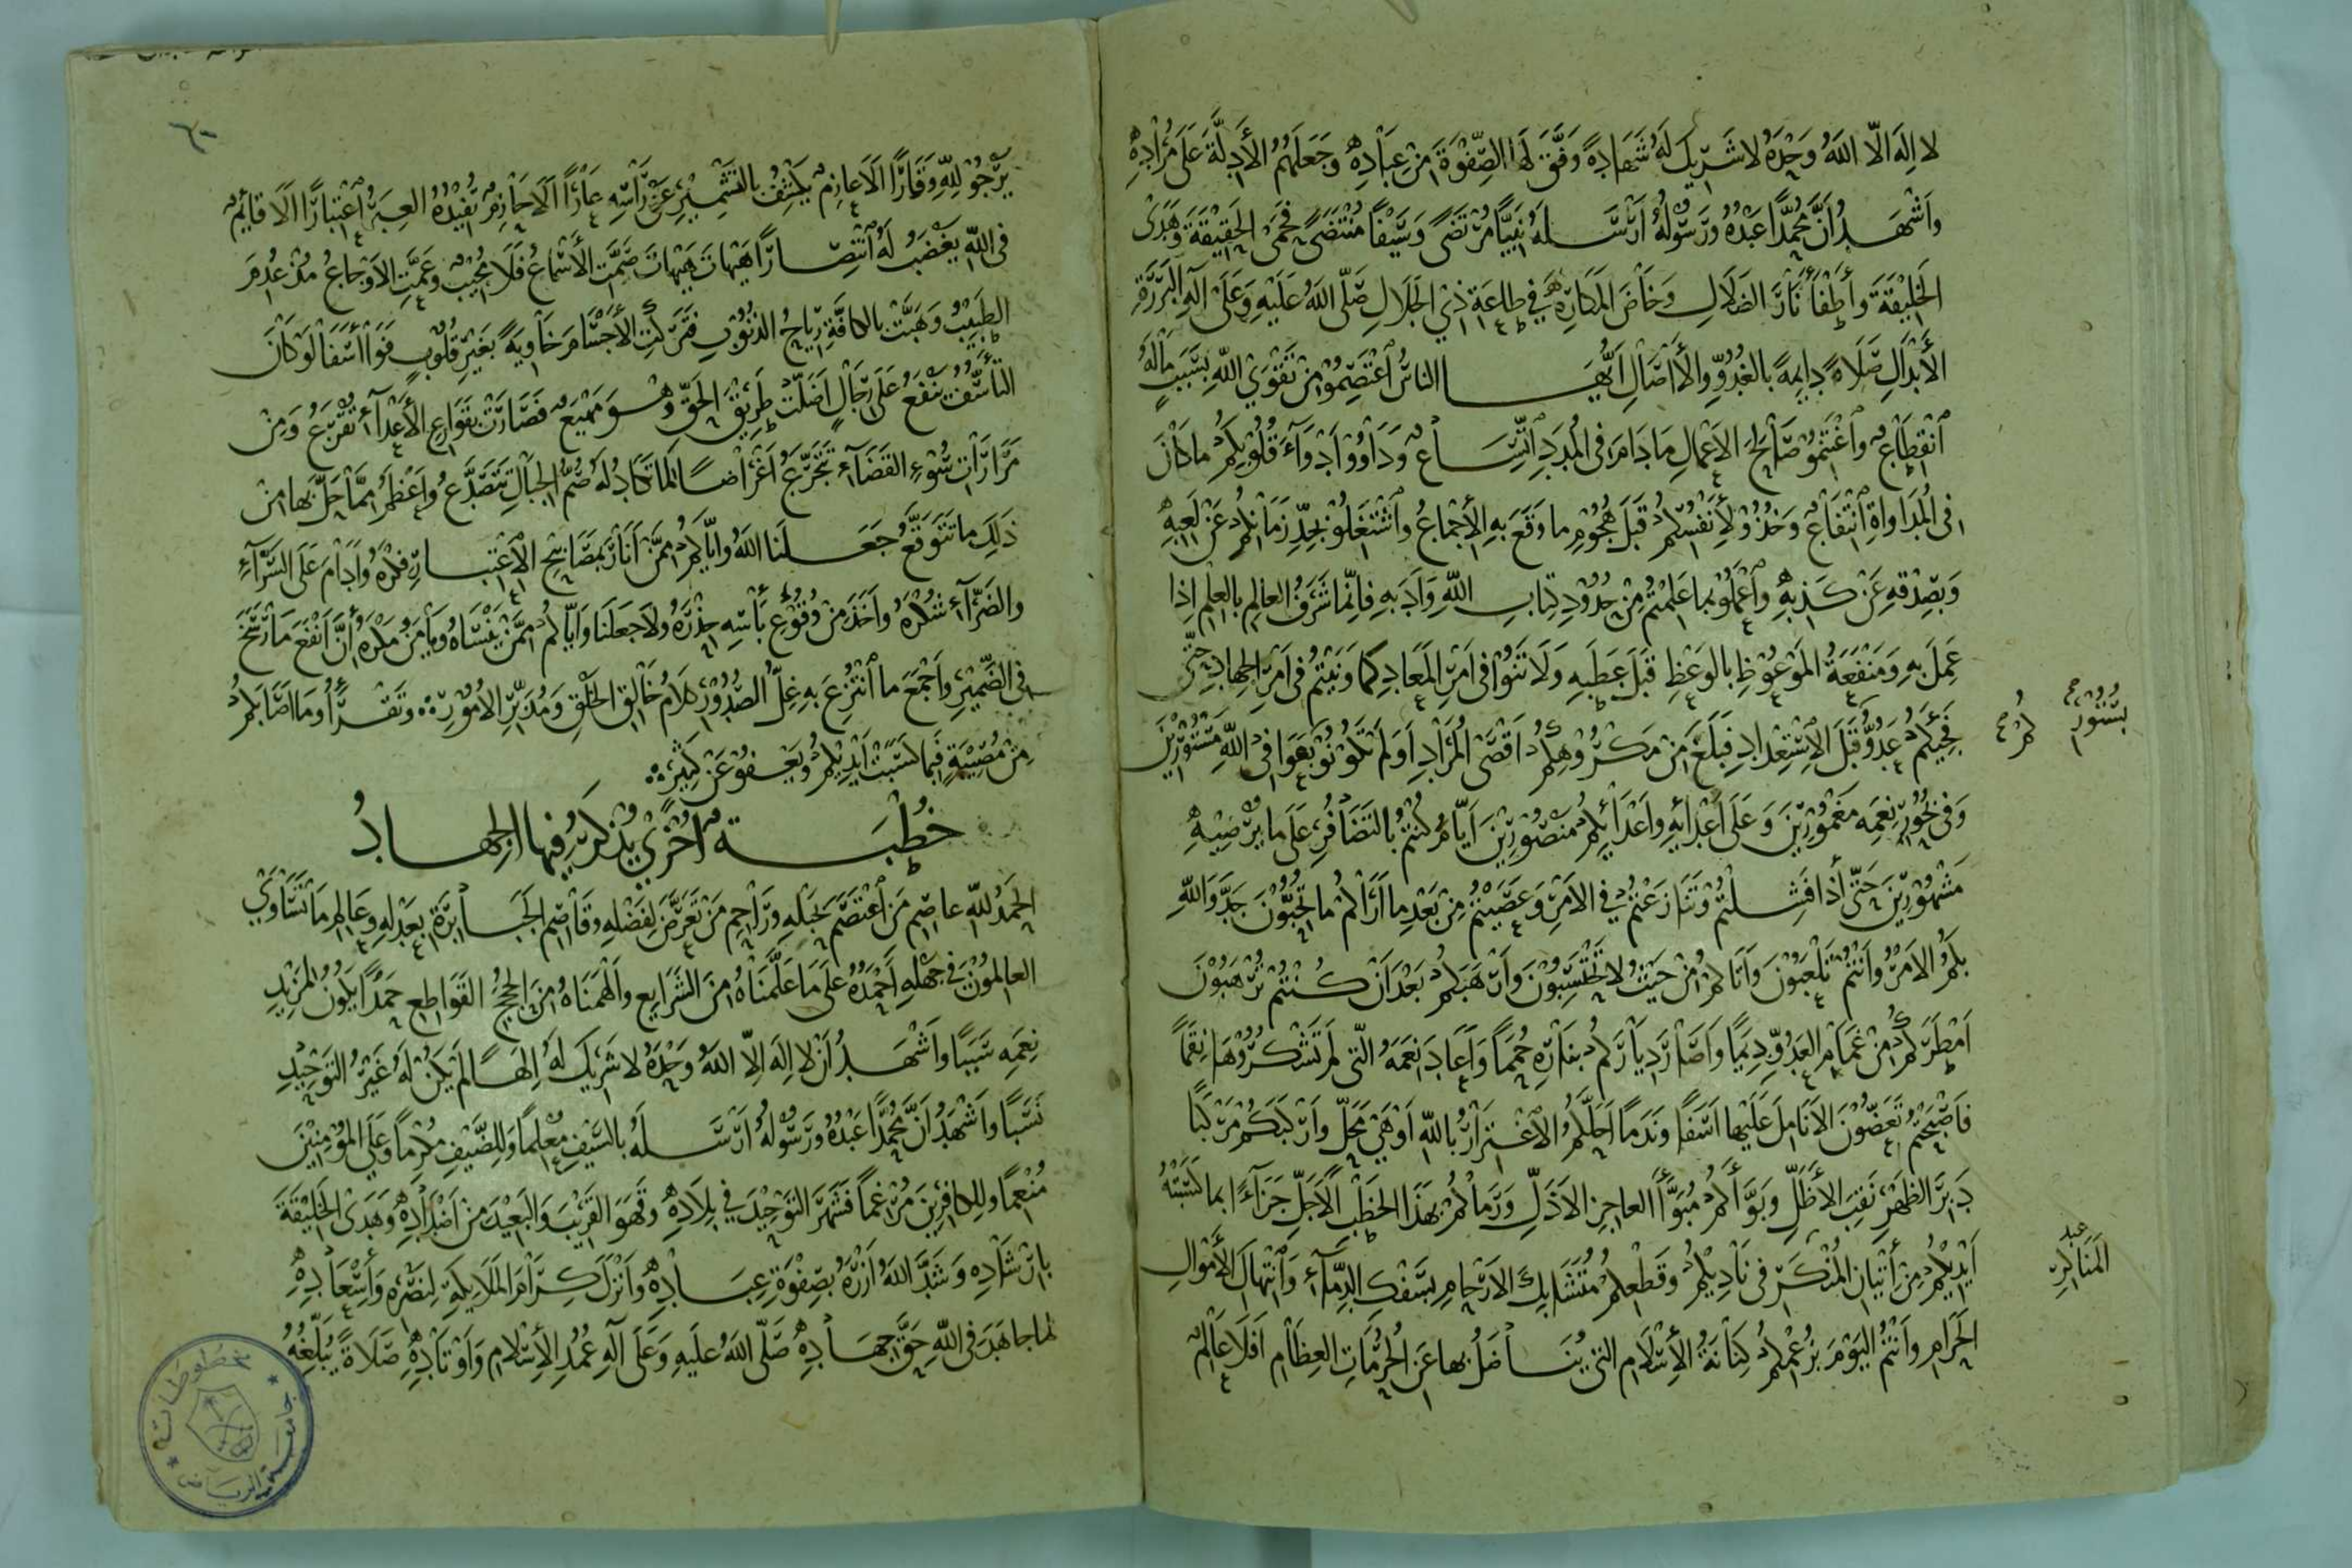 لا اِلهَ الّا اللهُ وحْدَهُ لا شَرِيكَ لَهُ شَهادةً وَفَّقَ لَها الصِّفْوَةَ مِنْ عِبَادِهْ وجَعَلَهُمُ الأَدِلَّةَ عَلَى مُرَادِهْ
واَشْهَدُ انَّ مُحَمَّدًا عَبْدُهُ ورَسُولُهُ اَرْسَلهُ نَبِيًّا مُرْتَضًى وَسَيْفًا مُنْتَضًى فَحَمَى الحَقِيْقَةَ وَهَدَى
الخَلِيْقَةَ وأَطْفَأَ نَارَ الضَلَالِ وَخَاضَ المَكَارِهَ في طاعَةِ ذِي الجَلَالِ صَلّى اللهُ عَلَيْهِ وَعَلَى آلِهِ البَرَرَةِ
الأَبْدَالِ صَلَاةً دايِمةً بالغُدُوِّ والأٰصَالِ اَيُّهَا الناسُ اعْتَصِمُوا مِنْ تَقْوَى اللهِ بسَبَبٍ مالَهُ
اَنْقِطَاعٌ واغْتَنِمُو صَالِحَ الاَعْمالِ مَا دَامَ فى المُدَدِ اتِّسَاعٌ ودَاوُوْا اَدْوَآءَ قُلُوْبِكُمْ ما كَانَ
فى المُدَاوَاةِ انْتِفَاعٌ وَخُذُوْ لأِنَفْسِكُمْ قَبْلَ هُجُومِ ما وَقَعَ بهِ الأِجْمَاعُ واشْتَغِلُوْ بجِدِّ زَمَانِكُمْ عَنْ لَعِبِهْ
وَبصِدْقِهِ عَنْ كَذِبِهْ واعْمَلُوْ بما عَلِمْتُمْ مِنْ حُدُوْدِ كِتابِ اللهِ وَاَدَبِهِ فإنّما شَرَفُ العالِمِ بالعِلْمِ اِذا
عَمِلَ بهِ وَمَنْفَعَةُ المَوْعُوْظِ بالوَعْظِ قَبْلَ عَطَبِهِ وَلَا تَنُوْا فى اَمْرِ المَعَادِ كما وَنَيْتُمْ فى اَمْرِ الجِهَادِ حَتّى
فَجِئَكُمْ عَدُوُّ قَبْلَ الاِسْتِعْدادِ فبَلَغَ مِنْ مَكْرُوْهِكُمْ اقْصَى المُرَادِ اَوَلَمْ تَكُوْنُوْ بعَوَافى اللهِ مَسْتُوْرِيْنَ
كُمْ صح
بسُتُوْرِ صح
وَفى بُحُوْرِ نِعَمِه مَغْمُوْرِيْنَ وَعَلَى اَعْدَايهِ واعْدَائِكُمْ مَنْصُوْرِيْنَ اَيّامَ كُنْتُمْ بالتَضَافُرِ عَلَى ما يُرْضِيْهِ
مَشْهُوْرِيْنَ حَتّى أذا فَشِلْتُمْ وَتَنَازَعْتُمْ في الاَمْرِ وعَصَيْتُمْ مِنْ بَعْدِ ما اَرَاكُمْ ما تُحِبُّوْنَ جَدَّ وَاللهِ
بِكُمُ الاَمْرُ واَنْتُمْ تَلْعَبُوْنَ واَتَاكُمْ مِنْ حَيْثُ لا تَحْتَسِبُوْنَ وَأَرْهَبَكُمْ بَعْدَ اَنْ كُنْتُمْ تُرْهِبُوْنَ
اَمْطَرَكُمْ مِنْ غَمَامِ العَدُوِّ دِيَمًا وَاَصَارَ دِيَارَكُمْ بنارِهِ حُمَمًا وَاَعَادَ نِعَمَهُ الّتى لَمْ تَشْكُرُوْهَا نِقَمًا
فاَصْبَحْتُمْ تَعَضّوْنَ الاَنَامِلَ عَلَيْها اَسَفًا ونَدَمًا اَحَلَّكُمُ الاغْتِرَارُ باللهِ اَوْهَى مَحَلّ واَرْكَبَكُمْ مَرْكَبًا
دَبِرَ الظَهْرِ نَقِبَ الأَظَلِّ وبَوَّأَكُمْ مُبَوَّأَ العاجِزِ الاَذَلِّ وَرَمَاكُمْ بهَذَا الخَطْبِ الاَجَلِّ جَزَآءً بما كَسَبَتْهُ
اَيْدِيْكُمْ مِنْ أتْيَانِ المُنْكَرِ فى نَادِيْكُمْ وقَطْعِكُمْ مُتَشَابِكَ الاَرْحَامِ بسَفْكِ الدِمَآءِ وَانْتِهَاكِ الأَمْوَالِ
المَنَاكِرِ
الحَرَامِ واَنْتُمُ اليَوْمَ بزُعْمِكُمْ كِنَانَةُ الأِسْلَامِ التى يُنَاضَلُ بها عَنِ الحُرُمَاتِ العِظَامِ اَفَلَا عَالِمٌ
٦٠
يَرْجُوْ لِلّهِ وَقَارًا اَلَا عازِمٌ يَكْشِفُ بالتَشْمِيْرِ عَنْ رَأْسِهِ عَارًا اَلَا حَازِمٌ تُفِيْدُهُ العِبَرُ اعْتِبَارًا اَلَا قايِمٌ
فى اللهِ يغْضَبُ لَهُ انْتِصَارًا هَيْهَاتَ هَيْهَاتَ صَمَّتِ الأَسْمَاعُ فَلَا مُجِيْبٌ وعَمَّتِ الاَوْجَاعُ مُذْ عُدِمَ
الطبِيْبُ وَهَبَّتْ بالكافَّةِ رِيَاحُ الذنُوْبِ فتَرَكَتِ الأَجْسَامَ خَاوِيَةً بغَيْرِ قُلُوْبٍ فَوَاأَسَفَا لَوْ كَانَ
التأَسُّفُ يَنْفَعُ عَلَى رِجَالٍ اَضَلّتْ طَرِيْقَ الحَقّ وهْوَ مَهْيَعٌ فَصَارَتْ بقَوَارِعِ الأَعْدَآءِ تُقْرَعُ وَمِنْ
مَرَارَاتِ سُوْءِ القَضَآءِ تَتَجَرَّعُ اَغْرَاضًا لِمَا تَكَادُ لَهُ صُمُّ الجِبَالِ تَتَصَدَّعُ واَعْظَمُ مِمّا حَلّ بها مِنْ
ذَلِكَ ما تَتَوَقّعُ جَعَلَنا اللهُ واِيّاكُمْ مِمَّنْ اَنَارَ بمَصَابِيْحِ الاِعْتِبَارِ فِكْرَهُ واَدَامَ عَلَى السَرّآءِ
والضَرّآءِ شُكْرَهُ واَخَذَ مِنْ وُقُوْعِ بَأْسِهِ حِذْرَهُ ولَا جَعَلَنَا وَايّاكُمْ مِمَّنْ يَنْسَاهُ ويأمَنُ مَكْرَهُ أنَّ اَنْفَعَ مَا رَسَخَ
فى الضَّمِيْرِ واَجْمَعَ ما انْتُزِعَ بهِ غِلُّ الصُدُوْرِ كَلَامُ خَالِقِ الخَلْقِ وَمُدَبِّرِ الاُمُوْرِ وتَقْرَأُ وَمَا اَصَابَكُمْ
مِنْ مُصِيْبَةٍ فبِمَا كَسَبَتْ اَيْدِيْكُمْ ويَعْفُوْ عَنْ كَثِيْرٍ
خُطْبَةٌ اُخْرَى يُذْكَرُ فِيْها الجِهادُ
الحَمْدُ لِلّهِ عاصِمِ مَنِ اعْتَصَمَ بحَبْلِهِ ورَاحِمِ مَنْ تَعَرَّضَ لِفَضْلِهِ وقَاصِمِ الجَبَابِرَةِ بعَدْلِهِ وعَالِمِ مَا تَسَاوَى
العالِمُوْنَ فى جَهْلِهِ اَحْمَدُهُ عَلَى مَا عَلَّمَنَاهُ مِنَ الشَرَايِعِ واَلْهَمَنَاهُ مِنَ الحُجَجِ القَوَاطِعِ حَمْدًا يَكُوْنُ لِمَزِيْدِ
نِعَمِهِ سَبَبًا واَشْهَدُ اَنْ لا اِلهَ اِلّا اللهُ وَحْدَهُ لا شَرِيْكَ لَهُ اِلهًا لَمْ يَكُنْ لَهُ غَيْرُ التَوْحِيْدِ
نَسَبًا واَشْهَدُ اَنَّ مُحَمَّدًا عَبْدُهُ ورَسُوْلُهُ اَرْسَلهُ بالسَيْفِ مُعْلِمًا وَلِلضَّيْفِ مُكْرِمًا وعَلَى المُؤْمِنِيْنَ
مُنْعِمًا ولِلكافِرِيْنَ مُرْغِمًا فَشَهَرَ التَوْحِيْدَ في بِلَادِهْ وقَهَرَ القَرِيْبَ وَالبَعِيْدَ مِنْ اَضْدَادِهْ وَهَدَى الخَلِيْقَةَ
بأرْشَادِهِ وَشَدَّ اللهُ اَزْرَهُ بصِفْوَةِ عِبَادِهْ وَاَنْزَلَ كِرَامَ المَلَايِكَةِ لِنَصْرِهِ وَأِسْعَادِهْ
لما جاهَدَ فى اللهِ حَقَّ جِهَادِهْ صَلّى اللهُ علَيهِ وَعَلَى آلِهِ عُمُدِ الأِسْلَامِ وَاَوْتَادِهْ صَلَاةً يُبَلِّغُهُ
مخطوطات
جامعة الرياض